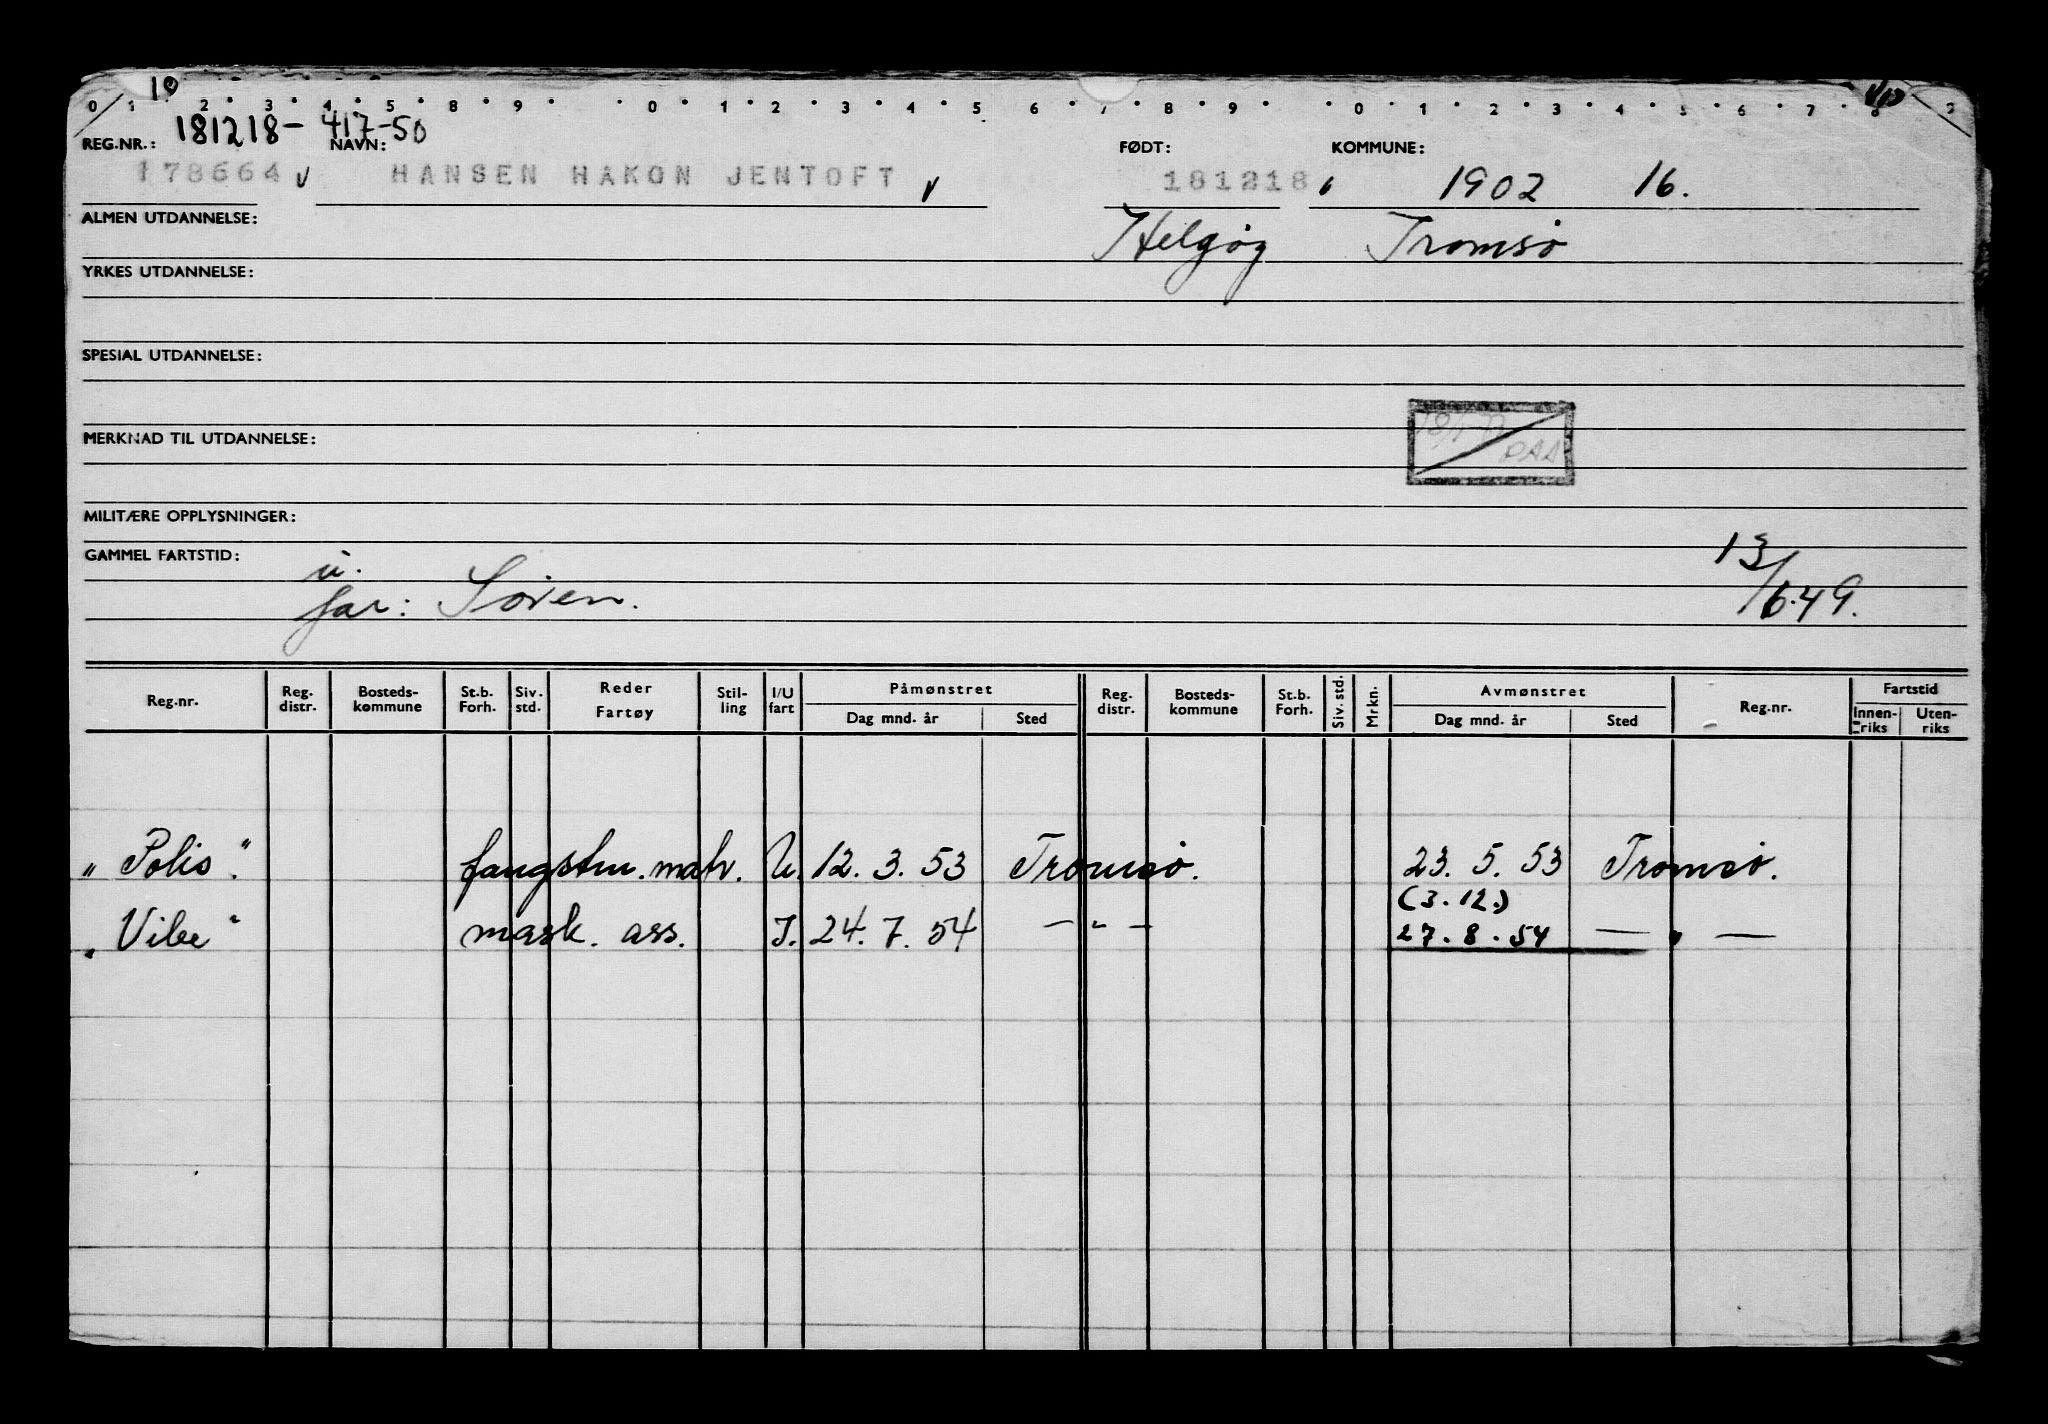 10
0 1 2 3 4 5 8 9 0 1 2 3 4 5 6 7 8 9 0 1 2 3 4 5 6 7 8 9
181218-417-50
REG.NR.: NAVN: FØDT: KOMMUNE:
178664 HANSEN HAKON JENTOFT 181218 1902 16.
ALMEN UTDANNELSE: Helgøy Tromsø
YRKES UTDANNELSE:
SPESIAL UTDANNELSE:
MERKNAD TIL UTDANNELSE:
MILITÆRE OPPLYSNINGER:
GAMMEL FARTSTID: 13/6.49.
u.
far: Søren.
Reg.nr. Reg. distr. Bosteds- kommune St.b. Forh. Siv. std. Reder Fartøy Stil- ling I/U fart Påmønstret Dag mnd. år Sted Reg. distr. Bosteds- kommune St.b. Forh. Siv. std. Mrkn. Avmønstret Dag mnd. år Sted Reg.nr. Fartstid Innen- riks Uten- riks
„Polis". fangstm. matr. U. 12. 3. 53 Tromsø. 23. 5. 53 Tromsø.
(3.12.)
„Vibe" mask. ass. I. 24. 7. 54 — " — 27. 8. 54 — " —